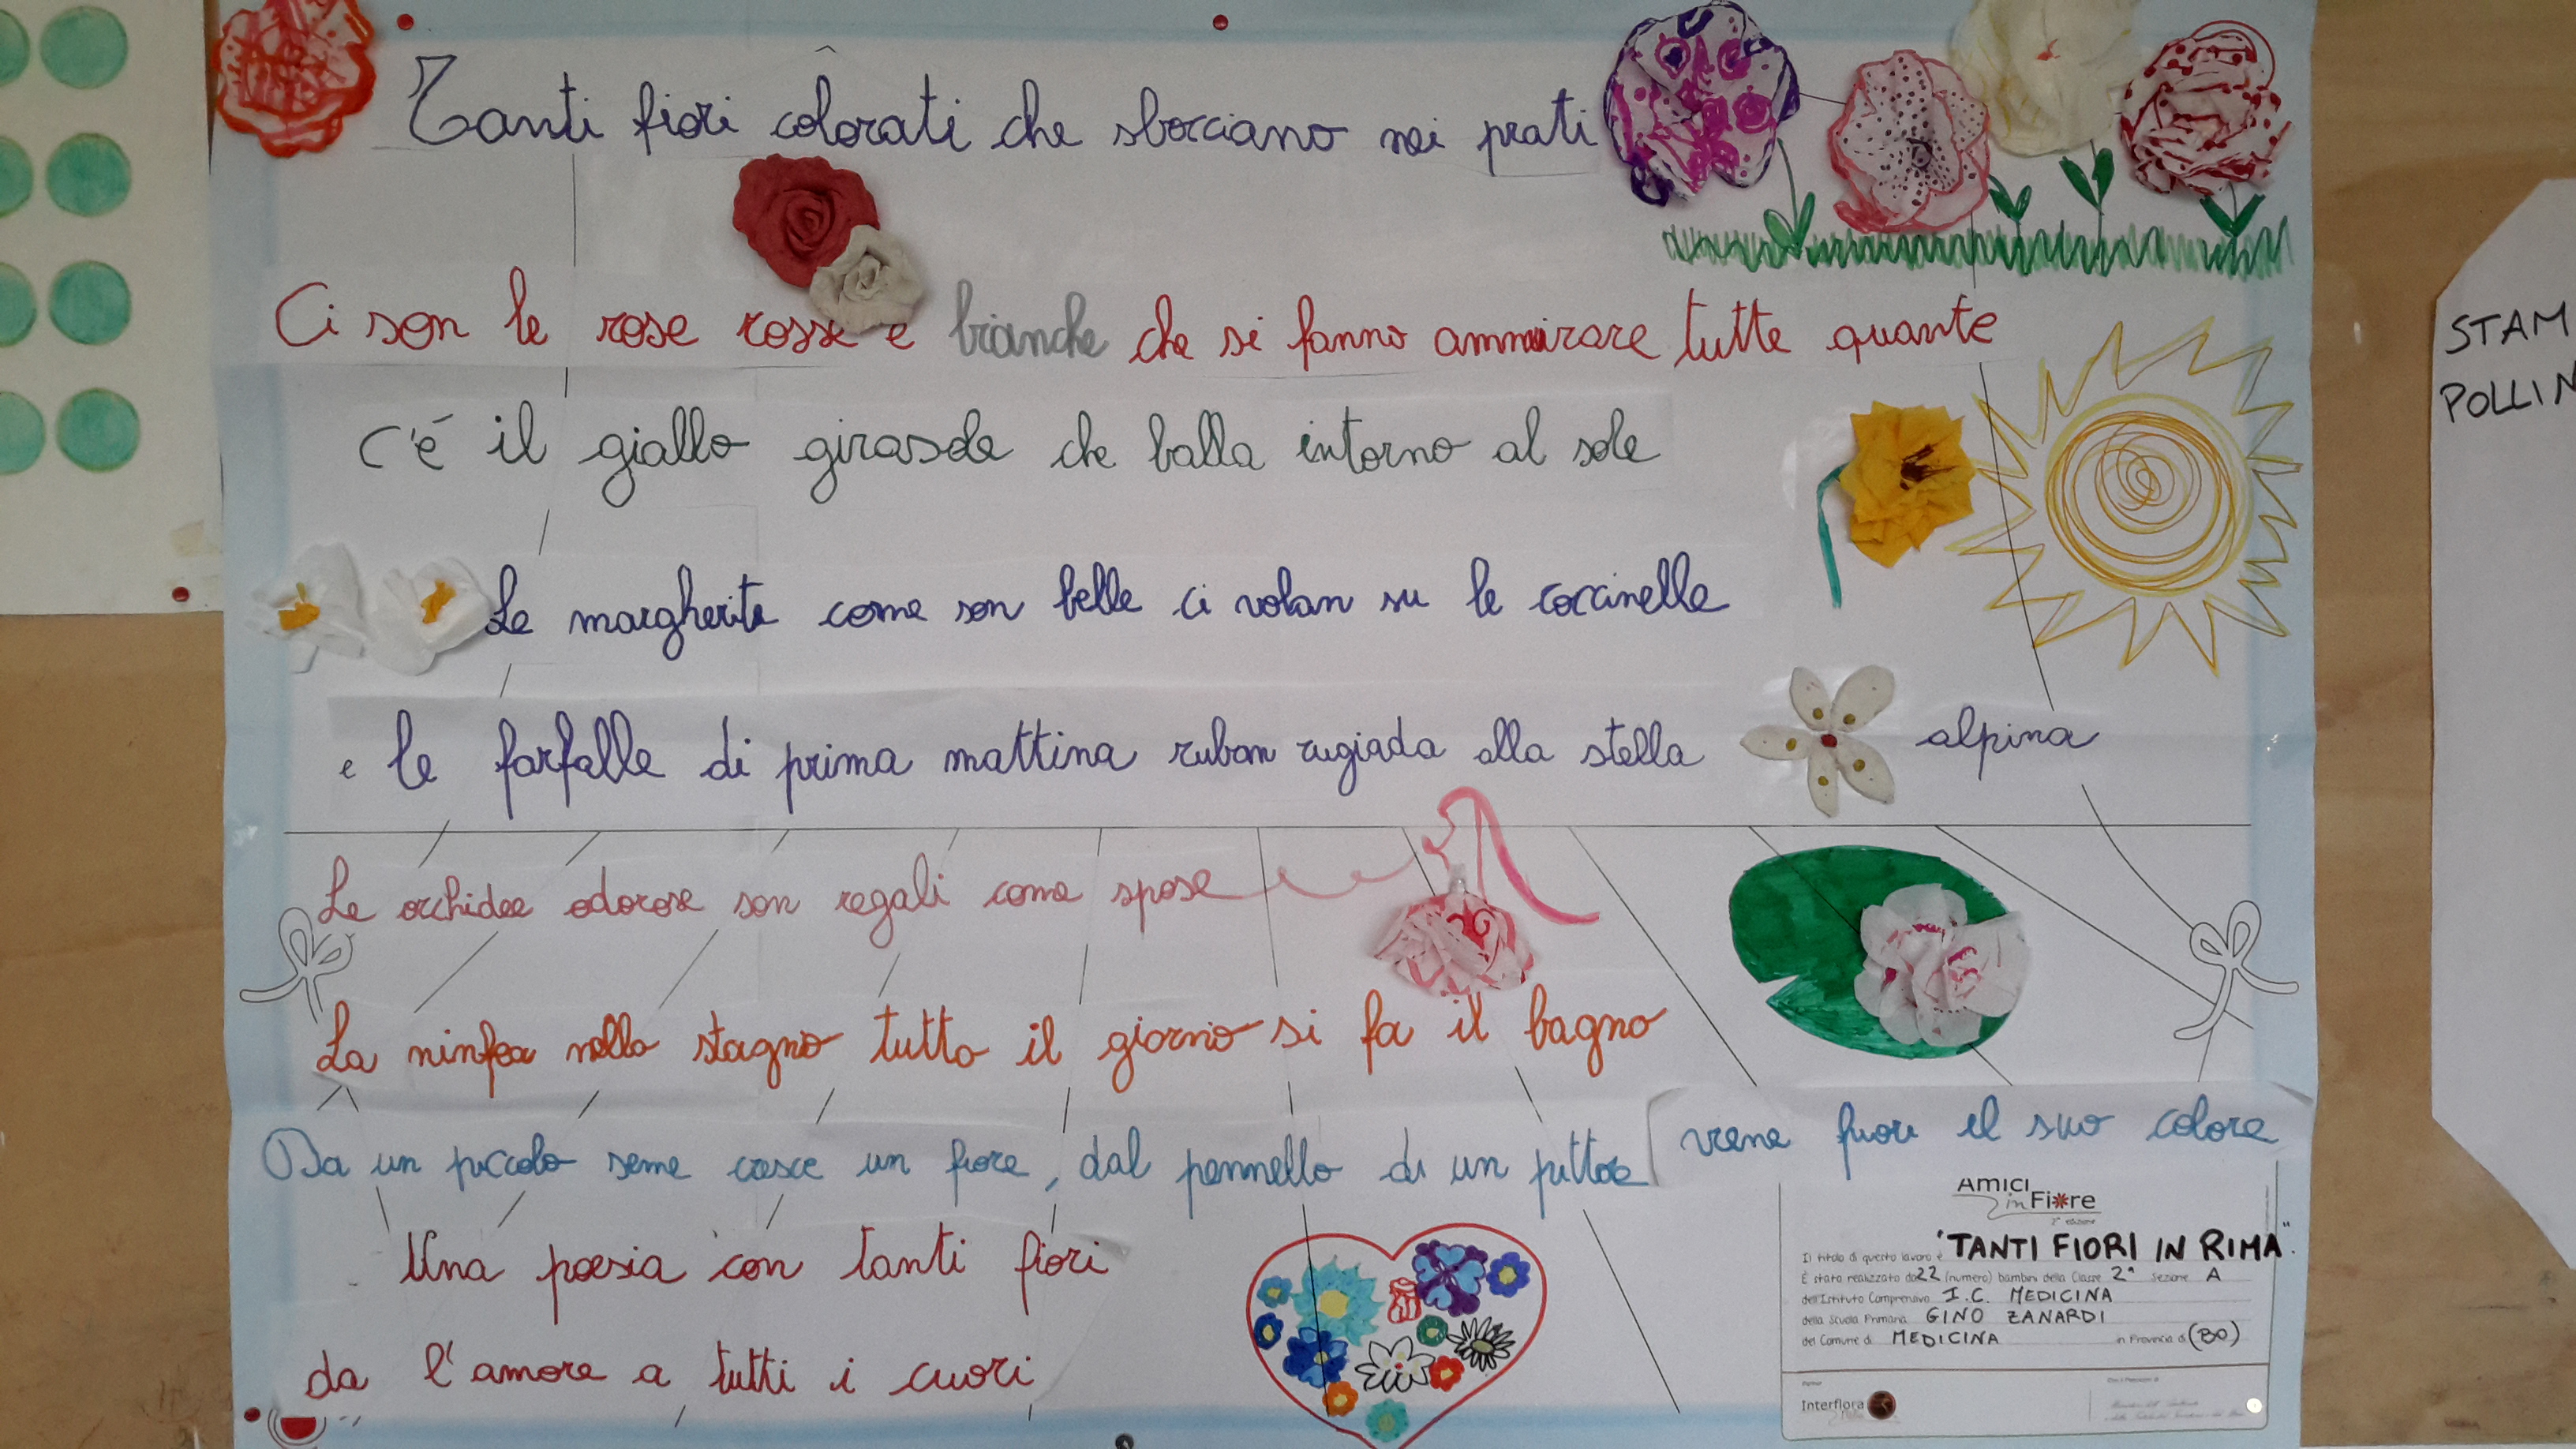 Tanti fiori colorati che sbocciano nei prati
Ci son le rose rosse e bianche che si fanno ammirare tutte quante
C'é il giallo girasole che balla intorno al sole
Le margherite come son belle ci volan su le coccinelle
e le farfalle di prima mattina ruban rugiada alla stella alpina
Le orchidee odorose son regali come spose
La ninfea nello stagno tutto il giorno si fa il bagno
Da un piccolo seme cresce un fiore, dal pennello di un pittore viene fuori il suo colore
Una poesia con tanti fiori
da l'amore a tutti i cuori
AMICI
in Fiore
2ª edizione
Il titolo di questo lavoro è "TANTI FIORI IN RIMA".
È stato realizzato da 22 (numero) bambini della Classe 2ª Sezione A
dell'Istituto Comprensivo I.C. MEDICINA
della Scuola Primaria GINO ZANARDI
del Comune di MEDICINA in Provincia di (BO)
Interflora
STAM
POLLIN